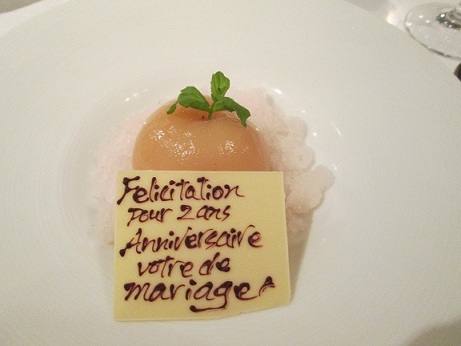 Felicitation
pour 2 ans
Anniversaire
votre de
mariage